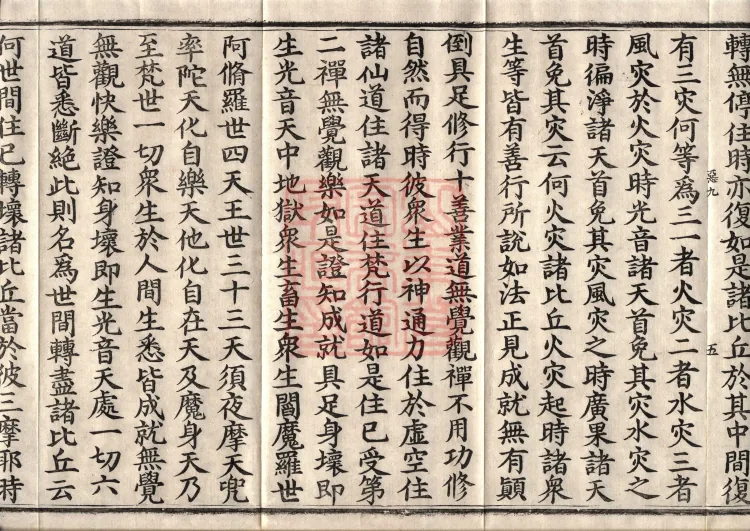 轉無停住時亦復如是諸比丘於其中間復
惡九
五
有三災何等為三一者火災二者水災三者
風災於火災時光音諸天首免其災水災之
時徧淨諸天首免其災風災之時廣果諸天
首免其災云何火災諸比丘火災起時諸衆
生等皆有善行所說如法正見成就無有顛
倒具足修行十善業道無覺觀禪不用功修
自然而得時彼衆生以神通力住於虛空住
諸仙道住諸天道住梵行道如是住已受第
二禪無覺觀樂如是證知成就具足身壞即
生光音天中地獄衆生畜生衆生閻魔羅世
阿脩羅世四天王世三十三天須夜摩天兜
率陀天化自樂天他化自在天及魔身天乃
至梵世一切衆生於人間生悉皆成就無覺
無觀快樂證知身壞即生光音天處一切六
道皆悉斷絕此則名爲世間轉盡諸比丘云
何世間住已轉壞諸比丘當於彼三摩耶時